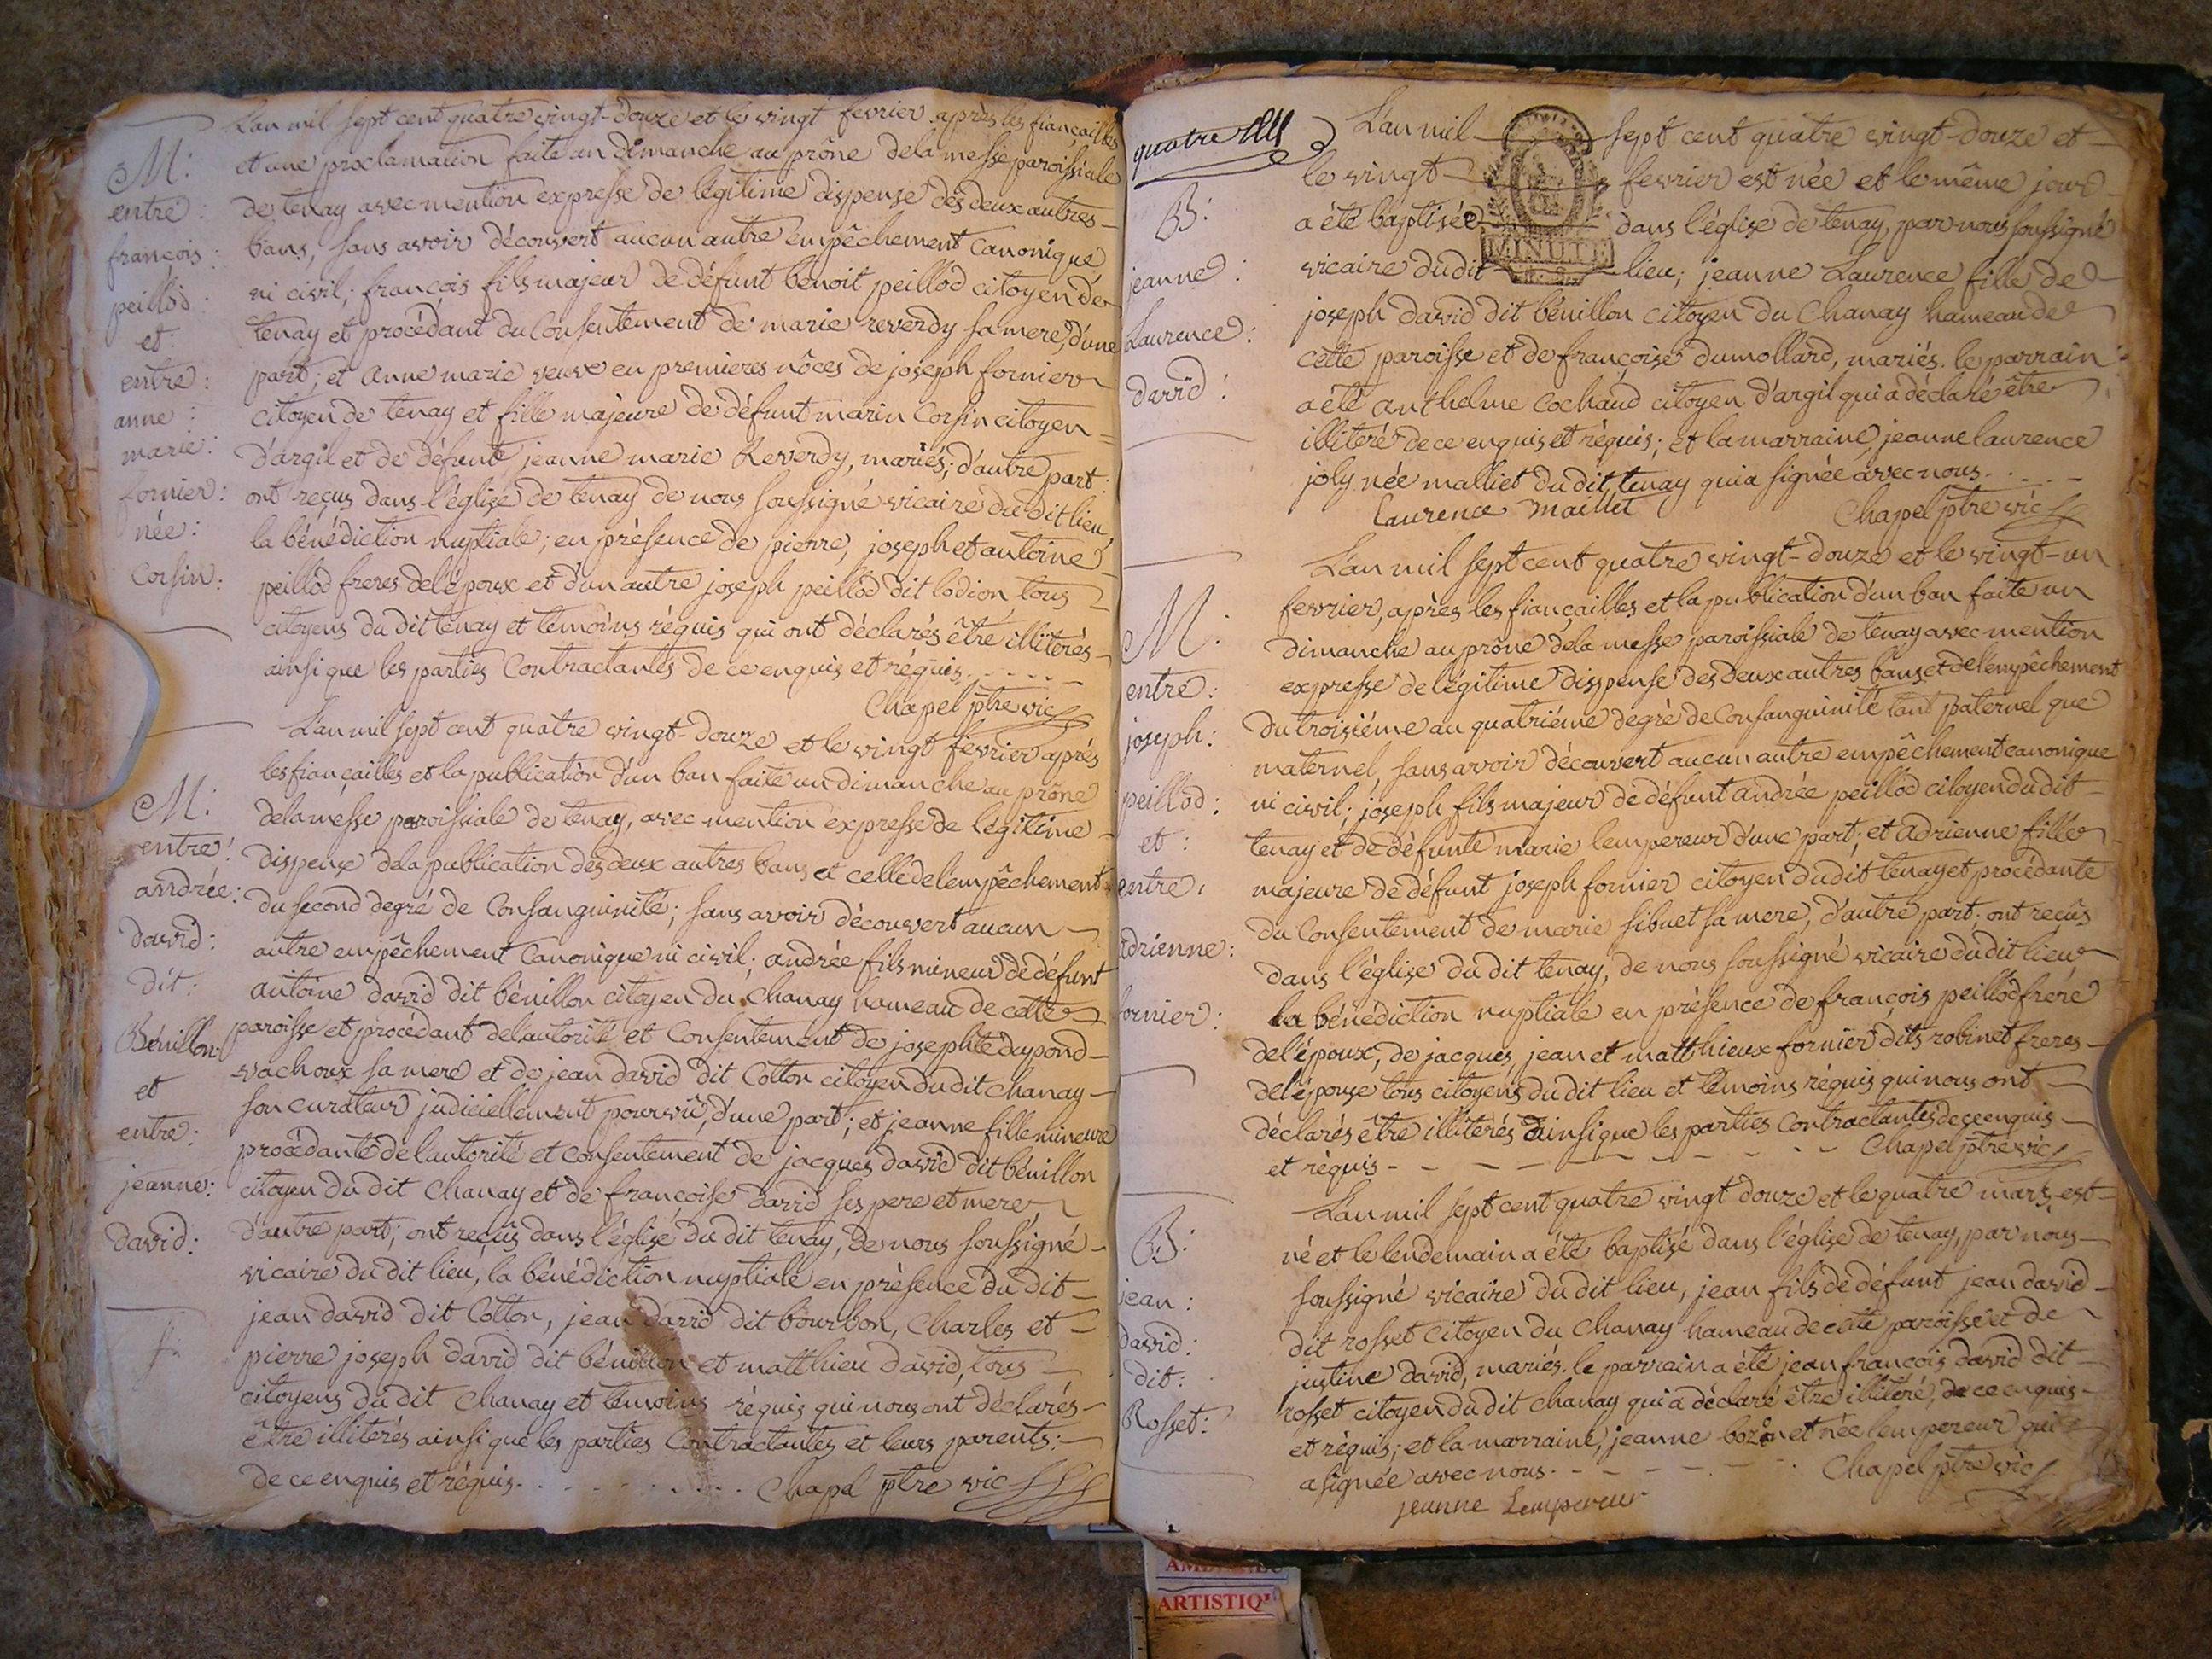 L'an mil sept cent quatre vingt-douze et le vingt fevrier. après les fiançailles
et une proclamation faite un dimanche au prône dela messe paroissiale
de tenay avec mention expresse de légitime dispense des deux autres
bans, sans avoir découvert aucun autre empêchement canonique
ni civil; françois fils majeur de défunt benoit peillod citoyen de
tenay et procédant du Consentement de marie reverdy sa mere, d'une
part; et anne marie veuve en premieres nôces de joseph fornier
citoyen de tenay et fille majeure de défunt marin Corsin citoyen
d'argil et de défunte jeanne marie Reverdy, mariés; d'autre part:
ont reçus dans l'église de tenay de nous soussigné vicaire dudit lieu
la bénédiction nuptiale; en présence de pierre, joseph et antoine
peillod freres de lépoux et d'un autre joseph peillod dit lodion, tous
citoyens du dit tenay et témoins réquis qui ont déclarés être illitérés
ainsi que les parties Contractantes de ce enquis et réquis.
Chapel ptre vic
M:
entre:
françois:
peillod:
et:
entre:
anne:
marie:
fornier:
née:
Corsin:
L'an mil sept cent quatre vingt-douze et le vingt fevrier après
les fiançailles et la publication d'un ban faite un dimanche au prône
dela messe paroissiale de tenay, avec mention expresse de légitime
dispense dela publication des deux autres bans et celle de lempêchement
du second degré de Consanguinité; sans avoir découvert aucun
autre empêchement Canonique ni civil; andrée fils mineur de défunt
antoine david dit bénillon citoyen du Chanay hameau de cette
paroisse et procédant de lautorité et Consentement de josephte dupond-
vachoux sa mere et de jean david dit Cotton citoyen du dit chanay
son curateur judiciellement pourvû, d'une part; et jeanne fille mineure
procédante de lautorité et consentement de jacques david dit bénillon
citoyen du dit Chanay et de françoise david ses pere et mere
d'autre part; ont reçûs dans l'église du dit tenay, de nous soussigné
vicaire du dit lieu, la bénédiction nuptiale en présence du dit
jean david dit Cotton, jean david dit bourbon, Charles et
pierre joseph david dit bénillon et matthieu david, tous
citoyens du dit Chanay et témoins réquis qui nous ont déclarés
être illitérés ainsi que les parties Contractantes et leurs parents:
de ce enquis et réquis. Chapel ptre vic
M:
entre:
andrée:
david:
dit:
Bénillon:
et
entre:
jeanne:
david:
quatre
L'an mil sept cent quatre vingt-douze et
le vingt fevrier est née et le même jour
a été baptisée dans l'église de tenay, par nous soussigné
vicaire du dit lieu; jeanne Laurence fille de
joseph david dit bénillon citoyen du Chanay hameau de
cette paroisse et de françoise dumollard, mariés. le parrain
a été anthelme Cochand citoyen d'argil qui a déclaré être
illitéré de ce enquis et réquis; et la marraine, jeanne laurence
joly née malliet du dit tenay qui a signée avec nous.
Laurence maillet Chapel ptre vic
B:
jeanne:
Laurence:
david:
L'an mil sept cent quatre vingt-douze et le vingt-un
fevrier, après les fiançailles et la publication d'un ban faite un
dimanche au prône dela messe paroissiale de tenay avec mention
expresse de légitime disspense des deux autres bans et de lempêchement
du troisiéme au quatriéme degré de Consanguinité tant paternel que
maternel, sans avoir découvert aucun autre empêchement canonique
ni civil; joseph fils majeur de défunt andrée peillod citoyen du dit
tenay et de défunte marie lempereur d'une part; et adrienne fille
majeure de défunt joseph fornier citoyen du dit tenay et procédante
du Consentement de marie sibuet sa mere, d'autre part; ont reçûs
dans l'église du dit tenay, de nous soussigné vicaire du dit lieu
la bénédiction nuptiale en présence de françois peillod frere
de l'époux, de jacques, jean et matthieux fornier dits robinet freres
de l'épouse tous citoyens du dit lieu et témoins réquis qui nous ont
déclarés être illitérés ainsi que les parties Contractantes de ce enquis
et réquis Chapel ptre vic
M:
entre:
joseph:
peillod:
et:
entre:
adrienne:
fornier:
L'an mil sept cent quatre vingt douze et le quatre mars, est
né et le lendemain a été baptisé dans l'église de tenay, par nous
soussigné vicaire du dit lieu, jean fils de défunt jean david
dit rosset Citoyen du Chanay hameau de cette paroisse et de
justine david, mariés. le parrain a été jean françois david dit
rosset citoyen du dit chanay qui a déclaré être illitéré, de ce enquis
et réquis; et la marraine, jeanne bozonet née lempereur qui
a signée avec nous. Chapel ptre vic
jeanne Lempereur
B:
jean:
david:
dit:
Rosset:
MINUTE
ARTISTIQU